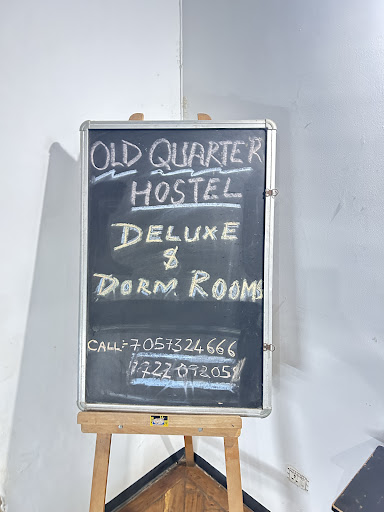 OLD QUARTER
HOSTEL
DELUXE
&
DORM ROOMS
CALL:- 7057324666
7722092058